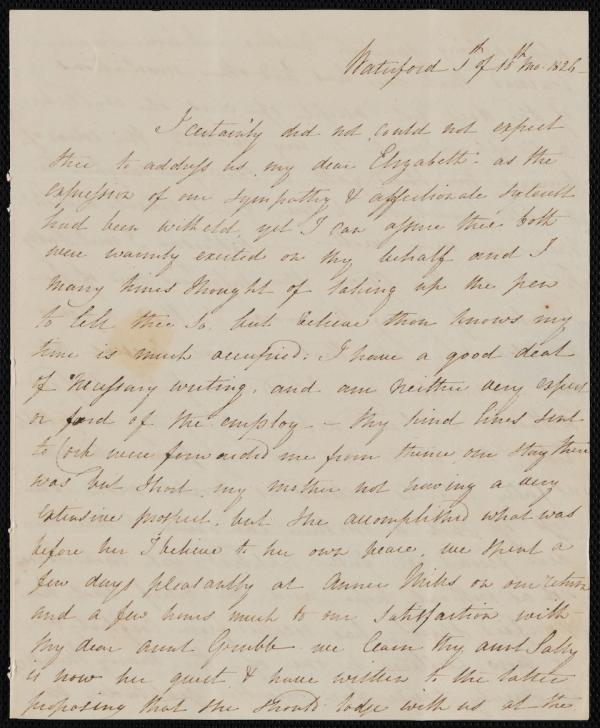 Waterford 5th of 10th Mo. 1826
I certainly did not, could not expect
thee to address us, my dear Elizabeth - as the
expression of our sympathy & affectionate interest
had been witheld, yet I can assure thee both
were warmly excited on thy behalf and I
many times thought of taking up the pen
to tell thee so, but believe thou knows my
time is much occupied; I have a good deal
of necessary writing, and am neither very expert
or fond of the employ - thy kind lines sent
to Cork were forwarded me from thence our stay there
was but short, my mother not having a very
extensive prospect, but she accomplished what was
before her I believe to her own peace, we spent a
few days pleasantly at Anner Mills on our return
and a few hours much to our satisfaction with
my dear aunt Grubb - we learn thy aunt Sally
is now her guest, & have written to the latter
proposing that she should lodge with us at the